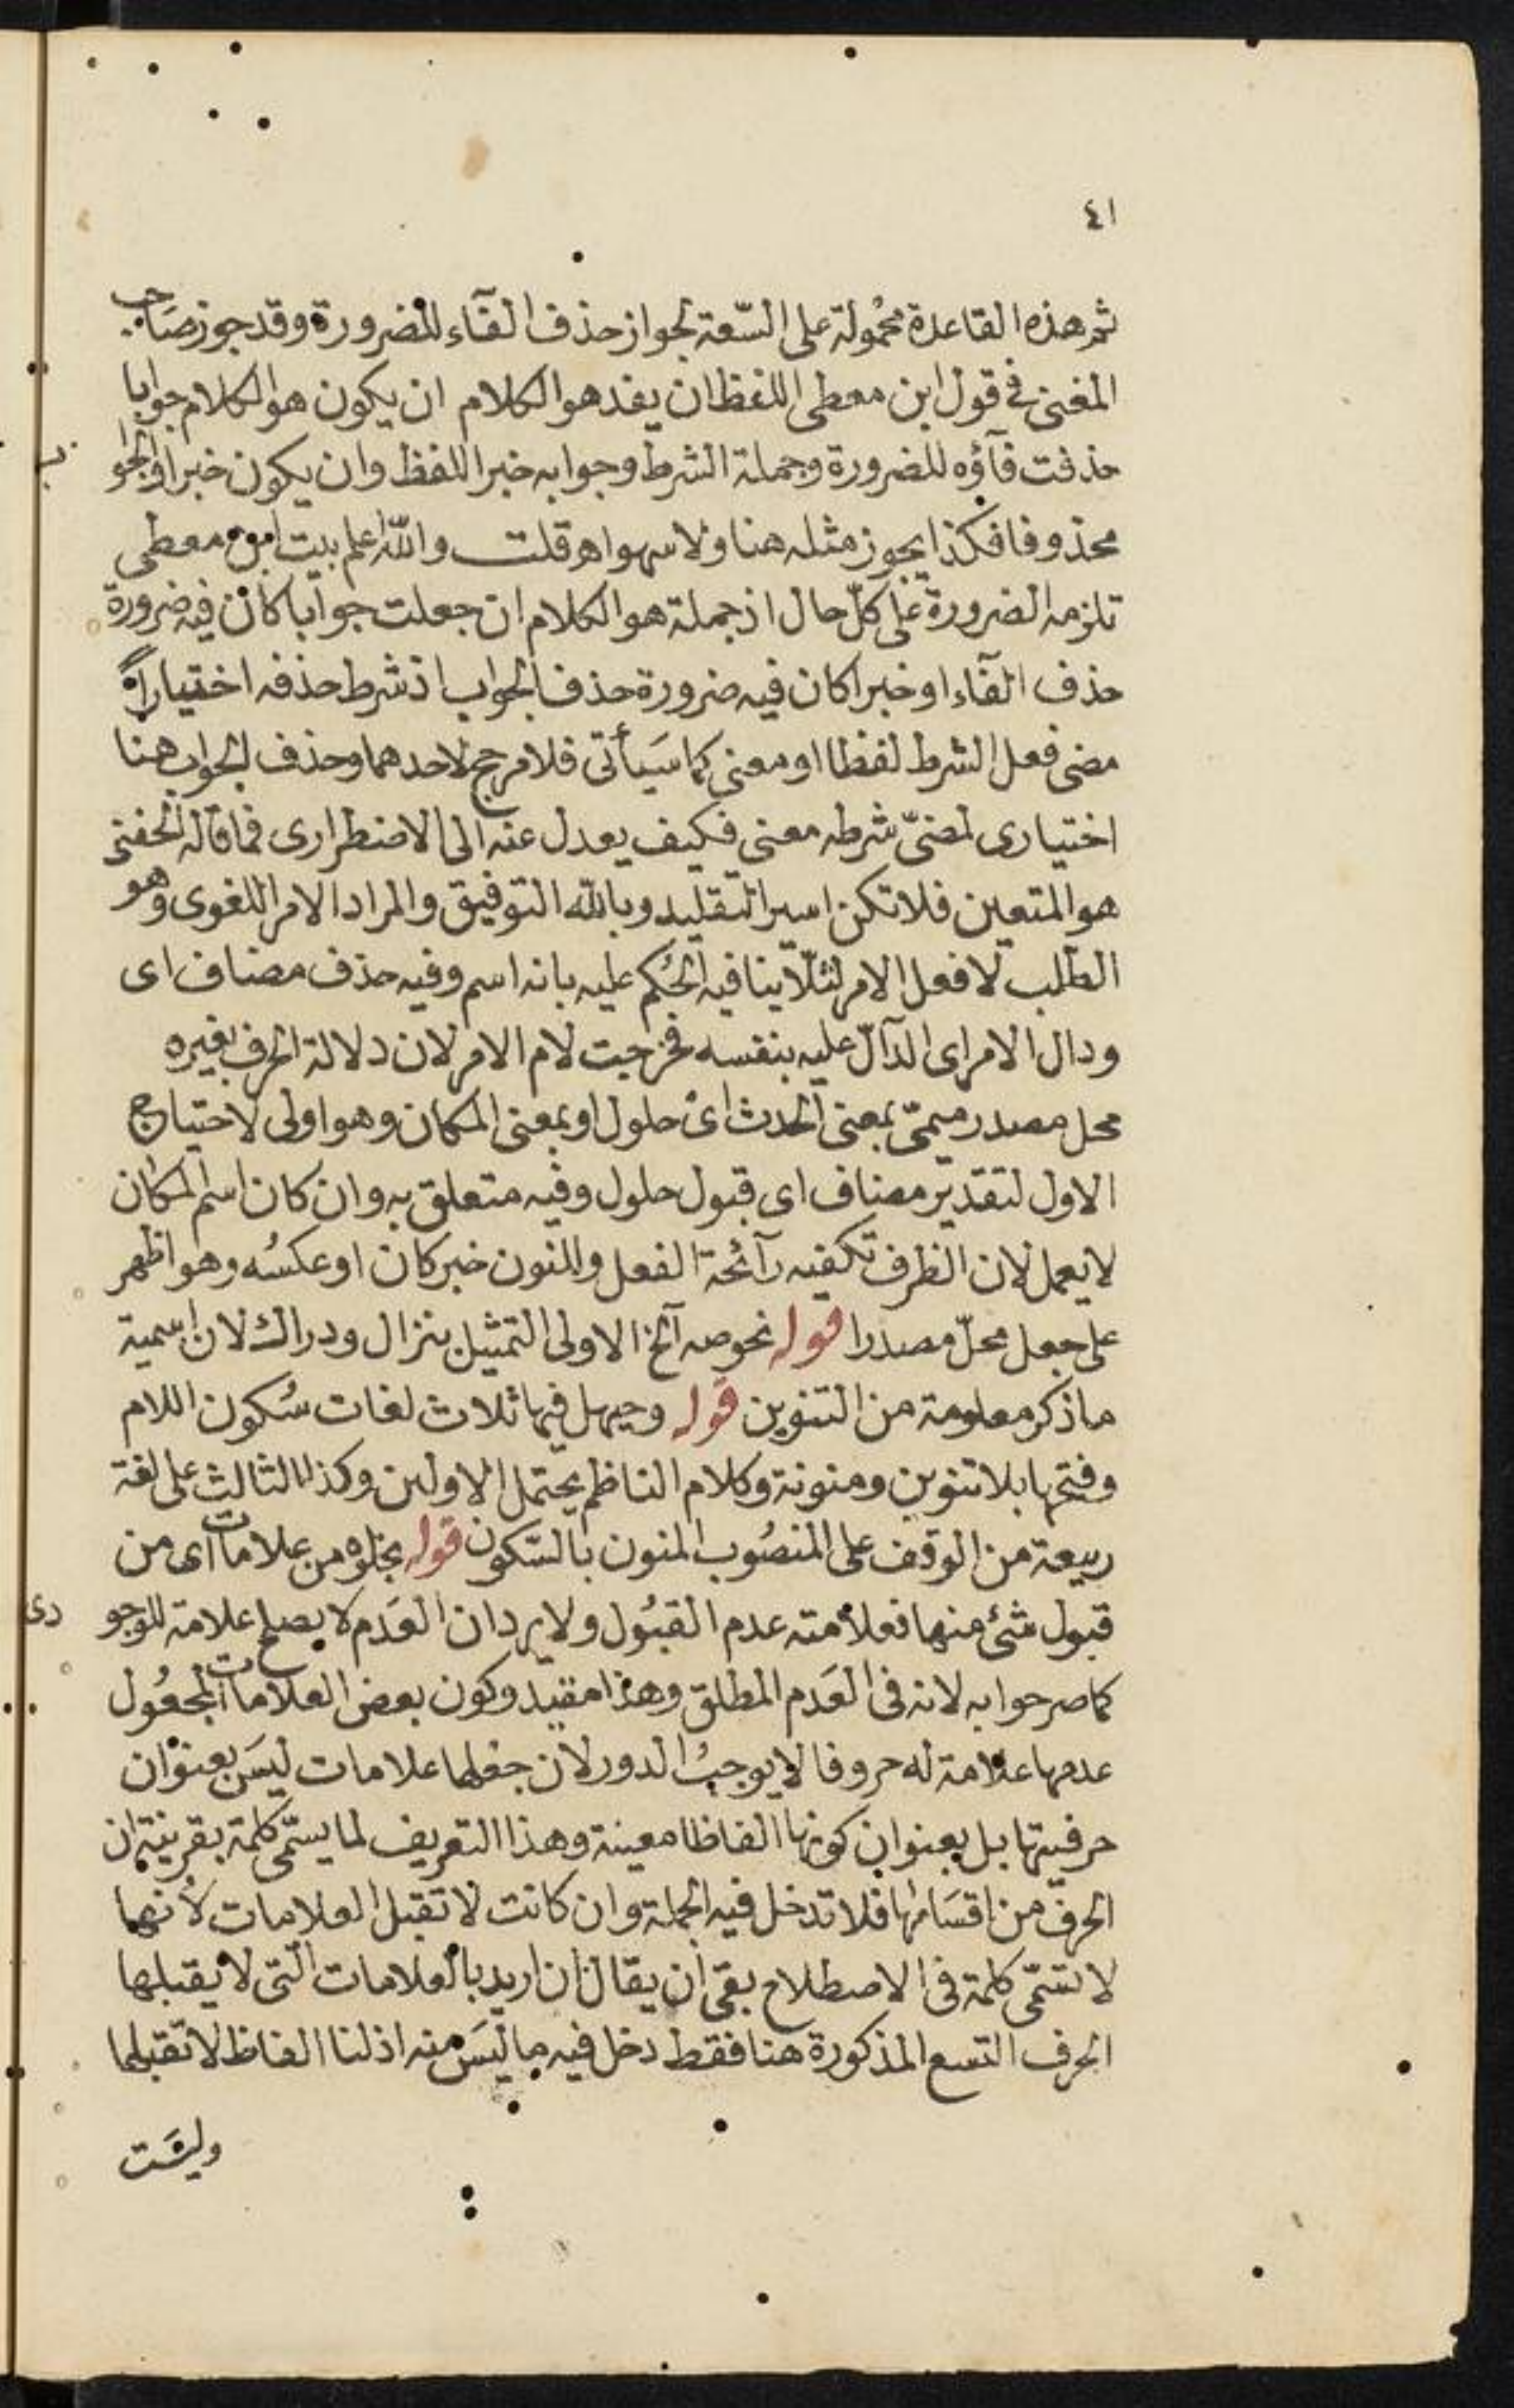 ٤١
ثم هذه القاعدة محمولة على السّعة لجواز حذف الفآء للضرورة وقد جوز صَاحب
المغنى فى قول ابن معطى اللفظ ان يفد هو الكلام ان يكون هو الكلام جوابا
حذفت فآؤه للضرورة وجملة الشرط وجوابه خبرا للفظ وان يكون خبرا والجوا
ب
محذوفا فكذا يجوز مثله هنا ولا سهو اهـ قلت والله اعلم بيت ابن معطى
تلزمه الضرورة على كلّ حال اذ جملة هو الكلام ان جعلت جوابا كان فيه ضرورة
حذف الفآء او خبرا كان فيه ضرورة حذف الجواب اذ شرط حذفه اختياراً
مضى فعل الشرط لفظا او معنى كما سَيأتى فلا مرجح لاحدهما وحذف الجواب هنا
اختيارى لمضىّ شرطه معنى فكيف يعدل عنه الى الاضطرارى فما قاله الحفنى
هو المتعين فلا تكن اسير التقليد وبالله التوفيق والمراد الامر اللغوى وهو
الطلب لا فعل الامر لئلّا ينافيه الحُكم عليه بانه اسم وفيه حذف مضاف اى
ودال الامر اى الدآلّ عليه بنفسه فخرجت لام الامر لان دلالة الحرف بغيره
محل مصدر ميمىّ بمعنى الحدث اى حلول او بمعنى المكان وهو اولى لاحتياج
الاول لتقدير مضاف اى قبول حلول وفيه متعلق به وان كان اسم المكان
لا يعمل لان الظرف تكفيه رآئحة الفعل والمنون خبر كان او عكسُه وهو اظهر
على جعل محلّ مصدرا قوله نحو صه آلخ الاولى التمثيل بنزال ودراك لان اسمية
ما ذكر معلومة من التنوين قوله وحيهل فيها ثلاث لغات سُكون اللام
وفتحها بلا تنوين ومنونة وكلام الناظم يحتمل الاولين وكذا الثالث على لغة
ربيعة من الوقف على المنصُوب المنون بالسّكون قوله بخلوه من علامات اى من
قبول شئ منها فعلامته عدم القبُول ولا يرد ان العَدم لا يصلح علامة للوجو
دى
كما صرحوا به لانه فى العَدم المطلق وهذا مقيد وكون بعض العلامات المجعُول
عدمها علامة له حروفا لا يوجبُ الدور لان جعلها علامات ليسَ بعنوان
حرفيتها بل بعنوان كونها الفاظا معينة وهذا التعريف لما يسمّى كلمة بقرينة ان
الحرف من اقسَامها فلا تدخل فيه الجملة وان كانت لا تقبل العلامات لأنها
لا تسَمّى كلمة فى الاصطلاح بقى ان يقال ان اريد بالعلامات التى لا يقبلها
الحرف التسع المذكورة هنا فقط دخل فيه ما ليَسَ منه اذ لنا الفاظ لا تقبلها
وليسَت